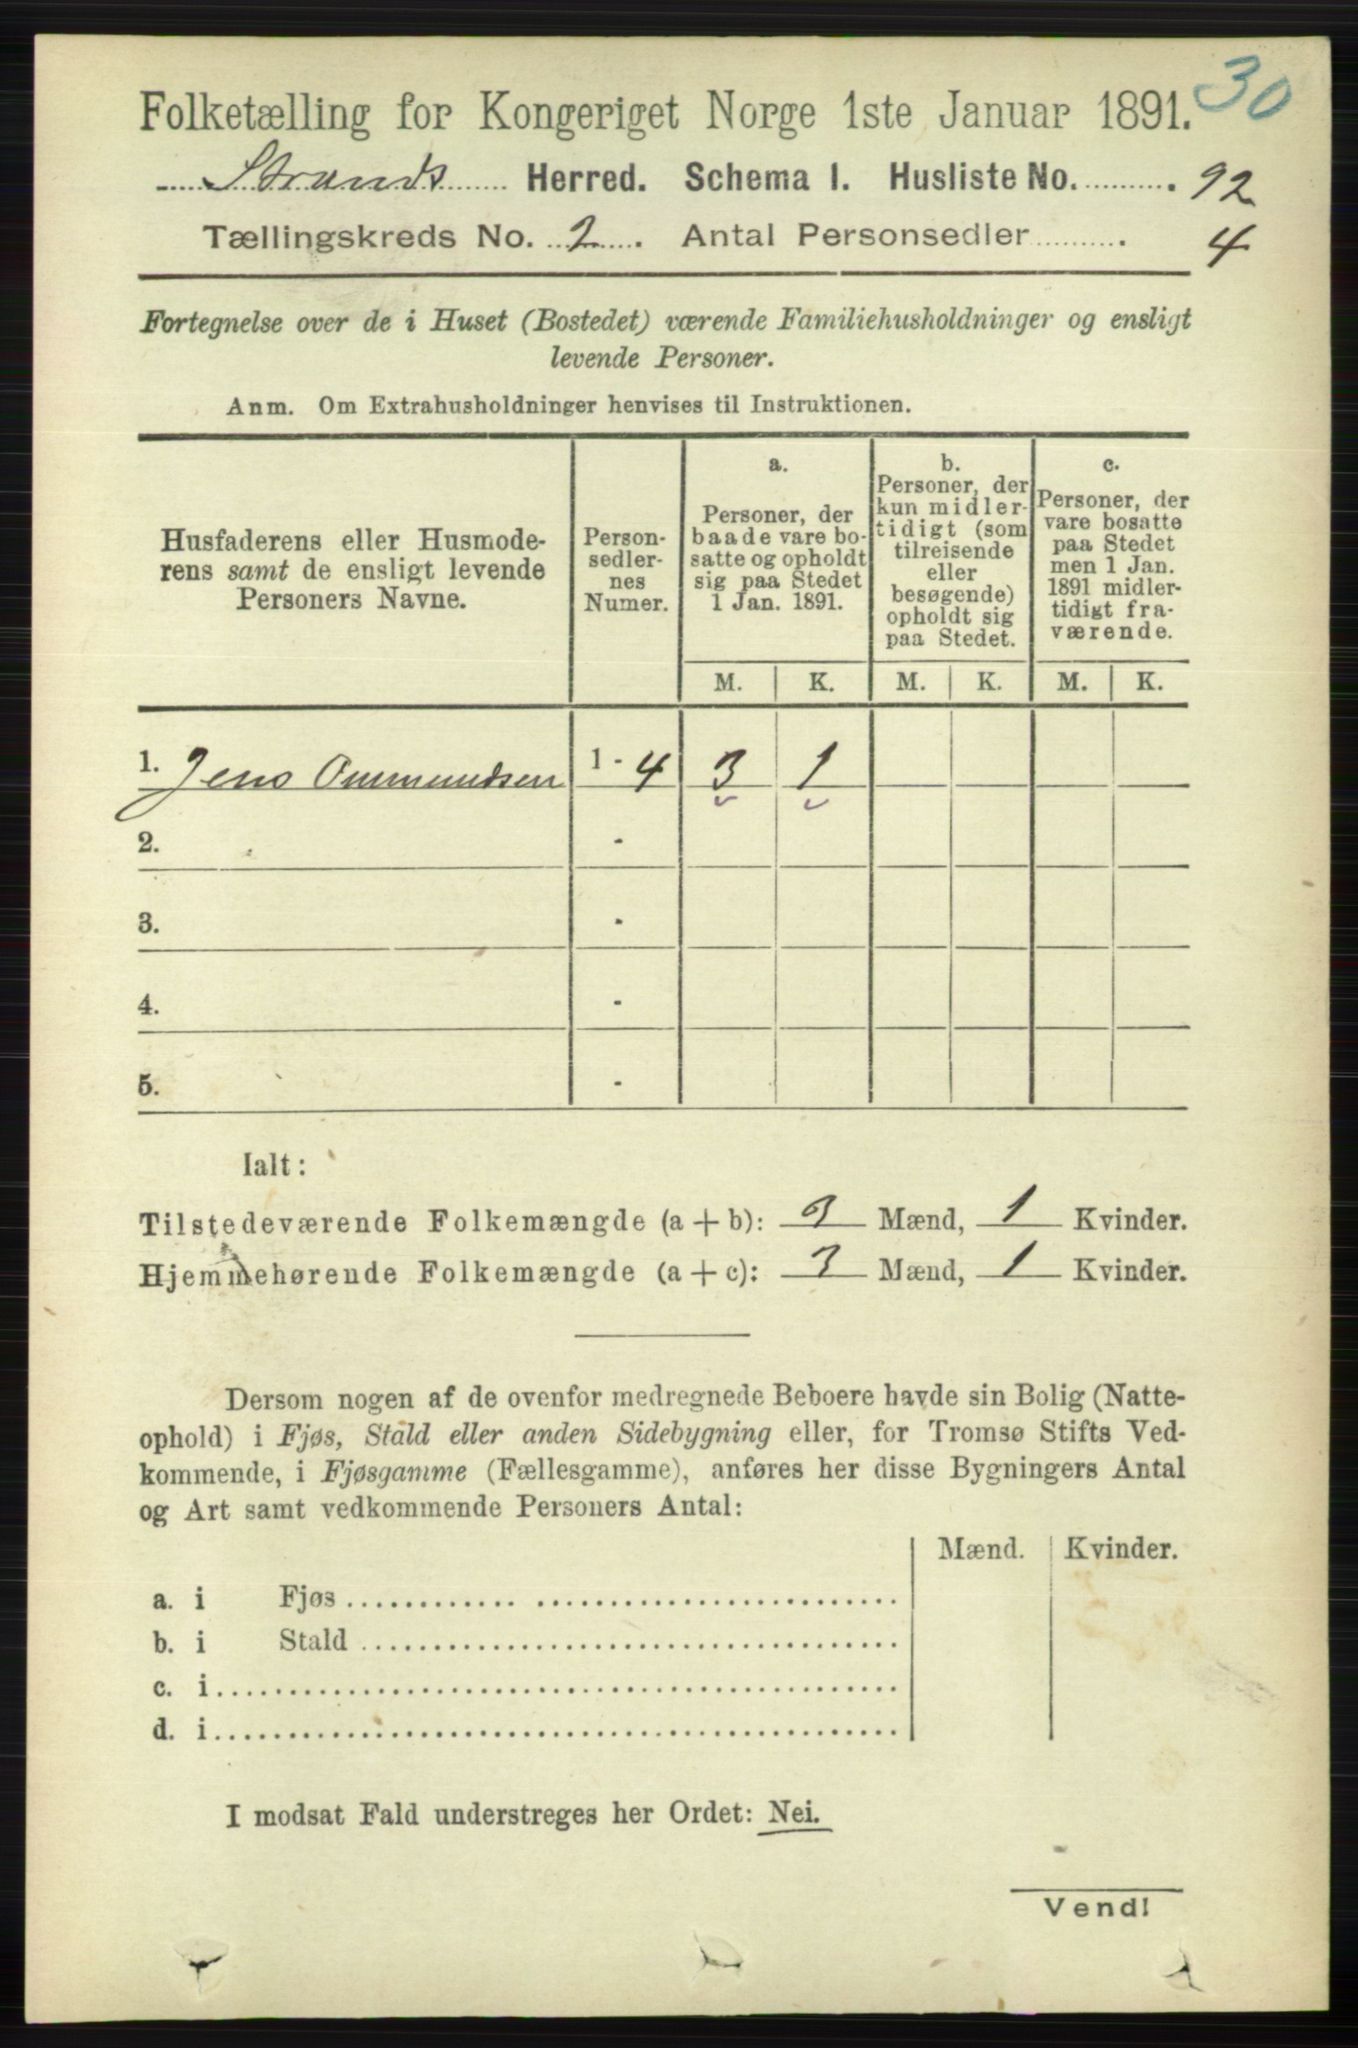 30
Folketælling for Kongeriget Norge 1ste Januar 1891.
Strands Herred. Schema 1. Husliste No. 92
Tællingskreds No. 2. Antal Personsedler 4
Fortegnelse over de i Huset (Bostedet) værende Familiehusholdninger og ensligt
levende Personer.
Anm. Om Extrahusholdninger henvises til Instruktionen.
Husfaderens eller Husmode-
rens samt de ensligt levende
Personers Navne.
Person-
sedler-
nes
Numer.
a.
Personer, der
baade vare bo-
satte og opholdt
sig paa Stedet
1 Jan. 1891.
b.
Personer, der
kun midler-
tidigt (som
tilreisende
eller
besøgende)
opholdt sig
paa Stedet.
c.
Personer, der
vare bosatte
paa Stedet
men 1 Jan.
1891 midler-
tidigt fra-
værende.
M. K. M. K. M. K.
1. Jens Ommundsen 1 - 4 3 1
2. -
3. -
4. -
5. -
Ialt:
Tilstedeværende Folkemængde (a + b): 3 Mænd, 1 Kvinder.
Hjemmehørende Folkemængde (a + c): 3 Mænd, 1 Kvinder.
Dersom nogen af de ovenfor medregnede Beboere havde sin Bolig (Natte-
ophold) i Fjøs, Stald eller anden Sidebygning eller, for Tromsø Stifts Ved-
kommende, i Fjøsgamme (Fællesgamme), anføres her disse Bygningers Antal
og Art samt vedkommende Personers Antal:
Mænd. Kvinder.
a. i Fjøs
b. i Stald
c. i
d. i
I modsat Fald understreges her Ordet: Nei.
Vend!